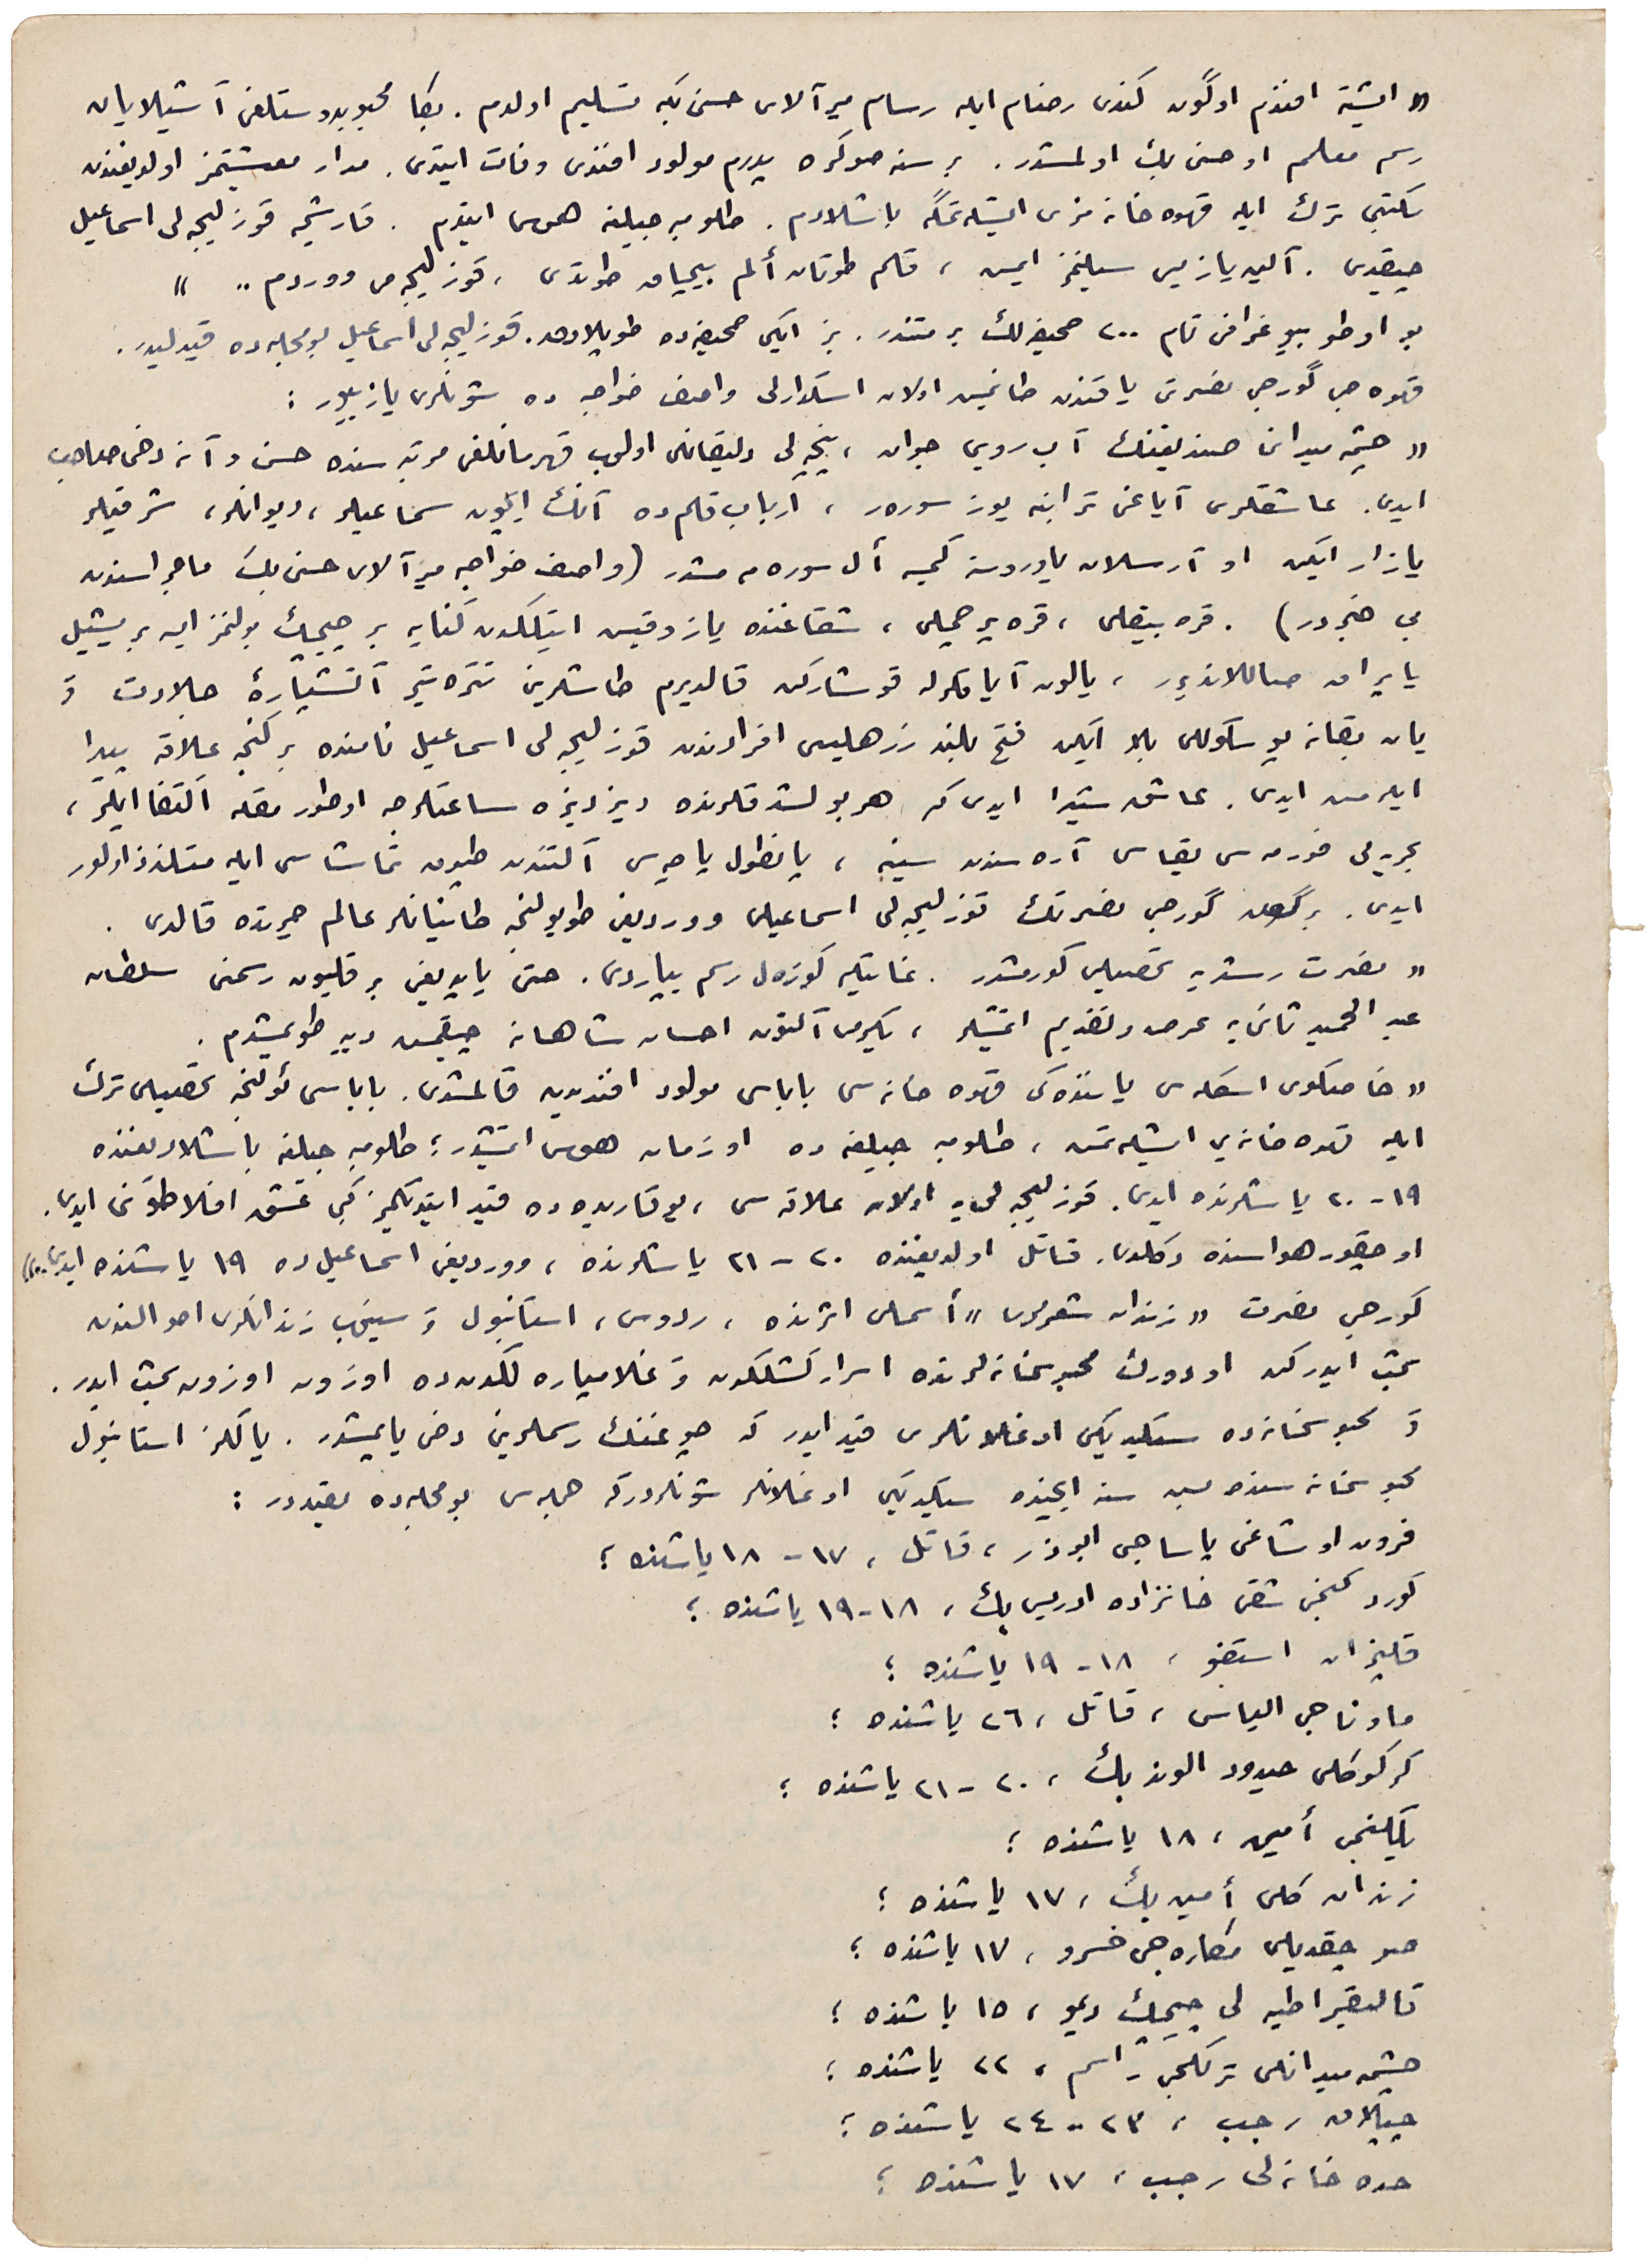 « ایشته افندم او گون کندی رضام ایله رسام میرآلای حسن بکه تسلیم اولدم . بكا محبوب دوستلغی آشیلایان
رسم معلمم او حسن بك اولمشدر . بر سنه صوكره پدرم مولود افندی وفات ایتدی . مدار معیشتمز اولدیغندن
مکتبی ترك ایله قهوه خانه مزی ایشلتمگه باشلادم . طلومبه جیلغه هوس ایتدم . قارشیمه قوزلیجه لی اسماعیل
چیقدی . آلین یازیسی سیلنمز ایمیش ، قلم طوتان ألم بیچاق طوتدی ، قوزلیجه لی ووردم .. »
بو اوطوبیوغرافی تام ٢٠٠ صحیفه لك بر متندر . بز ایکی صحیفه ده طوپلادق . قوزلیجه لی اسماعیل بو مجله ده قیدلیدر .
قهوه جی گورجی نصرتی یاقندن طانیمیش اولان اسکدارلی واصف خواجه ده شونلری یازییور :
« چشمه میدانی صندیغنك آب روی جوان ، پنچه لی دلیقانلی اولوب قهرمانلغی مرتبه سنده حسن و آنه دخی صاحب
ایدی . عاشقلری آیاغی ترابنه یوز سورر ، ارباب قلم ده آنك ایچون سماعیلر ، دیوانلر ، شرقیلر
یازار ایکن او آرسلان یاوروسنه کیمسه أل سوره مه مشدر (واصف خواجه میرآلای حسن بك ماجراسندن
بی خبردر) . قره بیقلی ، قره پرچملی ، شقاغنده یاز و قیش ایتلکدن کنایه بر چیچك بولنمز ایسه بر یشیل
یاپراق صاللاندیرر ، یالین آیاقلرله قوشارکن قالدیرم طاشلرینی تتره تیر آتشپارۀ جلادت و
یان بقانه پوسکوللی بلا ایکن فتح بلند رزهلیسی افرادندن قوزلیجه لی اسماعیل نامنده بر کنجه علاقه پیدا
ایله مش ایدی . عاشق شیدا ایدی که هر بولشدقلرنده دیز دیزه ساعتلرجه اوطورمقله اکتفا ایلر ،
بحریه لی فورمه سی یقاسی آره سندن سینه ، پانطول پاچه سی آلتندن طپوق تماشاسی ایله متلذذ اولور
ایدی . بر گون گورجی نصرتك قوزلیجه لی اسماعیلی ووردیغی طویولنجه طانییانلر عالم حیرتده قالدی .
« نصرت رشدیه تحصیلی کورمشدر . غایتله کوزه ل رسم یپاردی . حتی یاپدیغی بر قالیون رسمنی سلطان
عبد الحمید ثانی یه عرض و تقدیم ایتمشلر ، یکرمی آلتون احسان شاهانه چیقمش دییه طویمشدم .
« خاصکوی اسکله سی یاننده کی قهوه خانه سی باباسی مولود افندیدن قالمشدی . باباسی ئولنجه تحصیلی ترك
ایله قهوه خانه یی ایشلتمش ، طلومبه جیلغه ده او زمان هوس ایتمشدر ؛ طلومبه جیلغه باشلادیغنده
١٩ - ٢٠ یاشلرنده ایدی . قوزلیجه لی یه اولان علاقه سی ، یوقاریده ده قید ایتدیکمز کبی عشق افلاطونی ایدی .
اوچقور هواسنده دکلدی . قاتل اولدیغنده ٢٠ - ٢١ یاشلرنده ، ووردیغی اسماعیل ده ١٩ یاشنده ایدی .. »
کورجی نصرت « زندان شعرلری » أسملی اثرنده ، ردوس ، استانبول و سینوب زندانلری احوالندن
بحث ایدرکن او دورك محبوسخانه لرنده اسرارکشلکدن و غلامپاره لکدن ده اوزون اوزون بحث ایدر .
و محبوسخانه ده سکیدیکی اوغلانلری قید ایدر که چوغنك رسملرینی دخی یاپمشدر . یالکز استانبول
محبوسخانه سنده بش سنه ایچنده سکیدیکی اوغلانلر شونلردر که جمله سی بو مجله ده مقیددر :
فرون اوشاغی یاساجی ابوذر ، قاتل ، ١٧ - ١٨ یاشنده ؛
کورد کنجی شقی خانزاده ادریس بك ، ١٨ - ١٩ یاشنده ؛
قلیزان استفو ، ١٨ - ١٩ یاشنده ؛
ماوناجی الیاس ، قاتل ، ٢٦ یاشنده ؛
کرکوکلی حیدود الوند بك ، ٢٠ - ٢١ یاشنده ؛
یلکنجی أمین ، ١٨ یاشنده ؛
زندان کلی أمین بك ، ١٧ یاشنده ؛
صو چقدیلی مکاره جی خسرو ، ١٧ یاشنده ؛
قالیقیراطیه لی چیچك دیمو ، ١٥ یاشنده ؛
چشمه میدانلی ترلکجی راسم ، ٢٢ یاشنده ؛
چپلاق رجب ، ٢٣ - ٢٤ یاشنده ؛
حده خانه لی رجب ، ١٧ یاشنده ؛